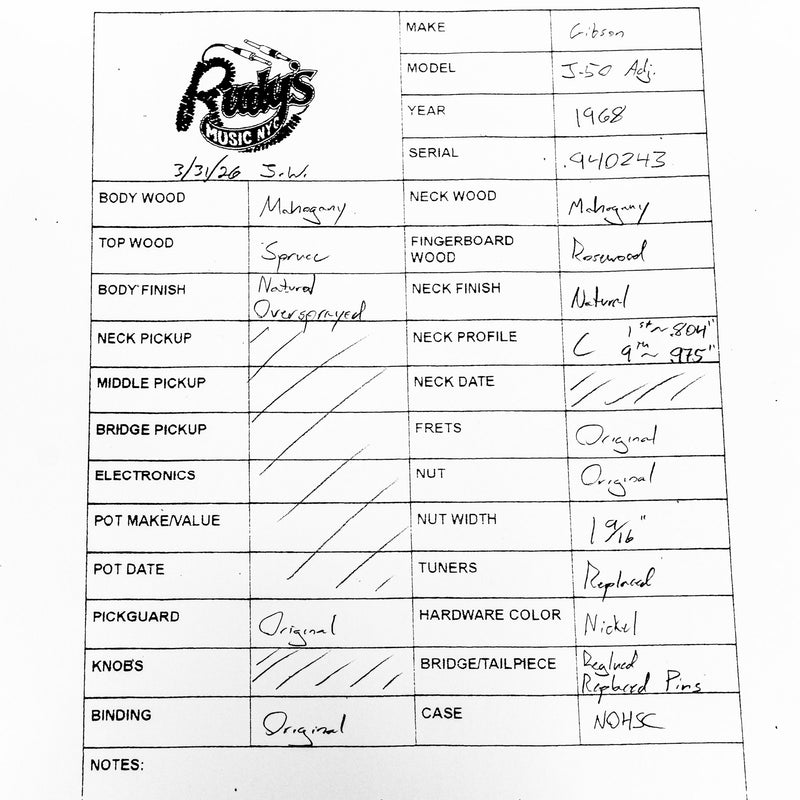 Rudy's
MUSIC NYC
3/31/26 J.W.
MAKE Gibson
MODEL J-50 Adj.
YEAR 1968
SERIAL 940243
BODY WOOD Mahogany NECK WOOD Mahogany
TOP WOOD Spruce FINGERBOARD WOOD Rosewood
BODY FINISH Natural Oversprayed NECK FINISH Natural
NECK PICKUP NECK PROFILE C 1st ~ .804" 9th ~ .975"
MIDDLE PICKUP NECK DATE
BRIDGE PICKUP FRETS Original
ELECTRONICS NUT Original
POT MAKE/VALUE NUT WIDTH 1 9/16"
POT DATE TUNERS Replaced
PICKGUARD Original HARDWARE COLOR Nickel
KNOBS BRIDGE/TAILPIECE Reglued Replaced Pins
BINDING Original CASE NOHSC
NOTES: